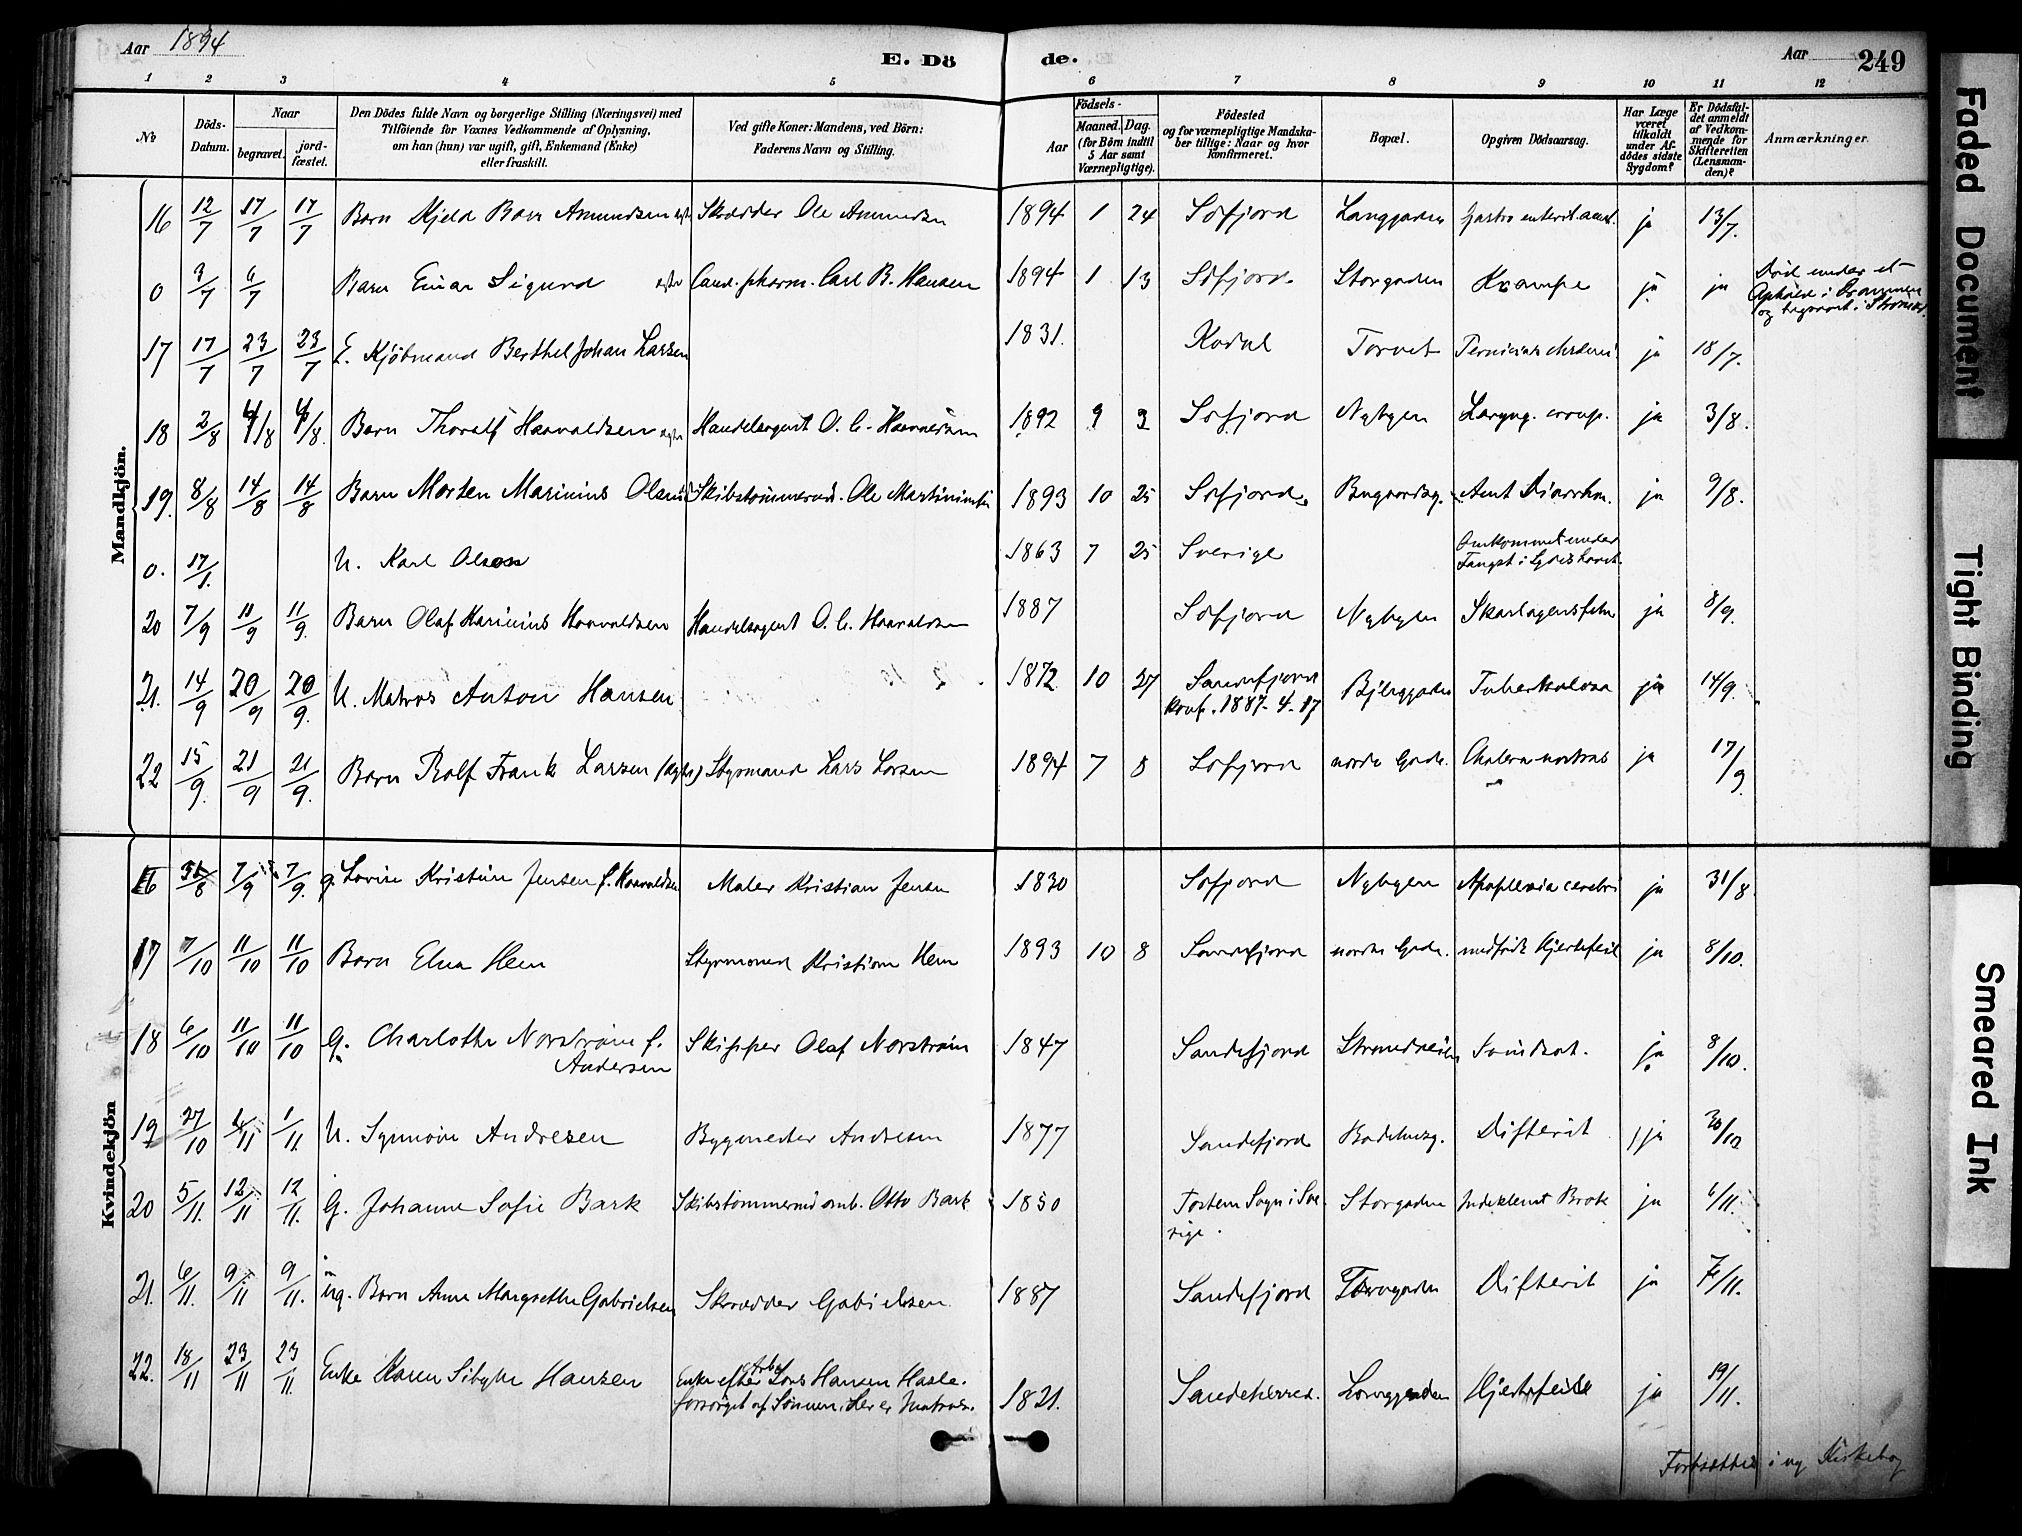 Aar 1894
E. Dö
de.
Aar 249
1 2 3 4 5 6 7 8 9 10 11 12
No
Döds-Datum.
Naar
begravet.
jord-fæstet.
Den Dödes fulde Navn og borgerlige Stilling (Næringsvei) med
Tilföiende for Voxnes Vedkommende af Oplysning,
om han (hun) var ugift, gift, Enkemand (Enke)
eller fraskilt.
Ved gifte Koner: Mandens, ved Börn:
Faderens Navn og Stilling.
Födsels-
Aar
Maaned. Dag.
(for Börn indtil
5 Aar samt
Værnepligtige).
Födested
og for værnepligtige Mandska-
ber tillige: Naar og hvor
konfirmeret.
Bopæl.
Opgiven Dödsaarsag.
Har Læge
været
tilkaldt
under Af-
dödes sidste
Sygdom?
Er Dödsfal-
det anmeldt
af Vedkom-
mende for
Skifteretten
(Lensman-
den)?
Anmærkninger.
Mandkjön.
16 12/7 17/7 17/7 Barn Kjeld Amundsen Skrædder Ole Amundsen 1894 1 24 Sefjord Langgaden Gastro enterit acut. ja 13/7.
0 3/7 6/7 Barn Einar Sigurd Cand. pharm. Carl B. Hansen 1894 1 13 Sefjord Storgaden Krampe ja ja Död under et
Ophold i Drammen
og begravet i
17 17/7 23/7 23/7 E. Kjöbmand Berthel Johan Larsen 1831. Kodal Torvet ja 18/7.
18 2/8 4/8 4/8 Barn Thoralf Haavaldsen Handelsagent O. C. 1892 9 9 Sefjord Nybyen Laryng. croup. ja 3/8.
19. 8/8 14/8 14/8 Barn Morten Marinius Ole 1893 10 25 Sefjord ja 9/8.
0. 17/1. U. Karl Olsson 1863 7 25 Sverige Omkommet under
Fangst i
20 7/9 11/9 11/9. Barn Olaf Marinius Haavaldsen Handelsagent O. C. Haavaldsen 1887 Sefjord Nybyen ja 8/9.
21. 14/9 20/9 20/9. U. Matros Anton Hansen 1872 10 27 Sandefjord
konf. 1887-4-17 Tuberkulose ja 14/9.
22 15/9. 21/9 21/9. Barn Rolf Frank Larsen Styrmand Lars Larsen 1894 7 8 Sefjord nordre Gade. Cholera nostras ja 17/9
Kvindekjön
16 31/8 7/9 7/9. g. Lovise Kristine Jensen f. Haavaldsen Maler Kristian Jensen 1830 Sefjord Nybyen Apoplexia cerebri ja 31/8.
17 7/10 11/10 11/10 Barn Elna Hem Styrmand Kristian Hem 1893 10 8 Sandefjord nordre Gade. medfödt Hjertefeil ja 8/10.
18 6/10 11/10 11/10 G. Charlotte Norström f.
Andersen Skipper Olaf Norström 1847 Sandefjord ja 8/10.
19 27/10 1/11 1/11. U. Synnöve Andresen Bygmester Andresen 1877 Sandefjord Difterit ja 30/10
20 5/11. 12/11 12/11. G. Johanne Sofie Bark Otto Bark 1850 Sogn i Sve-
rige. Storgaden Indeklemt Brok ja 6/11.
21. 6/11. 9/11 9/11. ug. Barn Anne Margrethe Gabrielsen Skrædder Gabrielsen 1887 Sandefjord Difterit ja 7/11.
22. 18/11 23/11 23/11. Enke Karen Sibylle Hansen Enke efter Lars Hansen Hasle.
forsörget af Sönnen 1821. Sandeherred. Hjertefeil ja 19/11.
Fortsættes i ny Kirkebog
Faded Document
Tight Binding
Smeared Ink